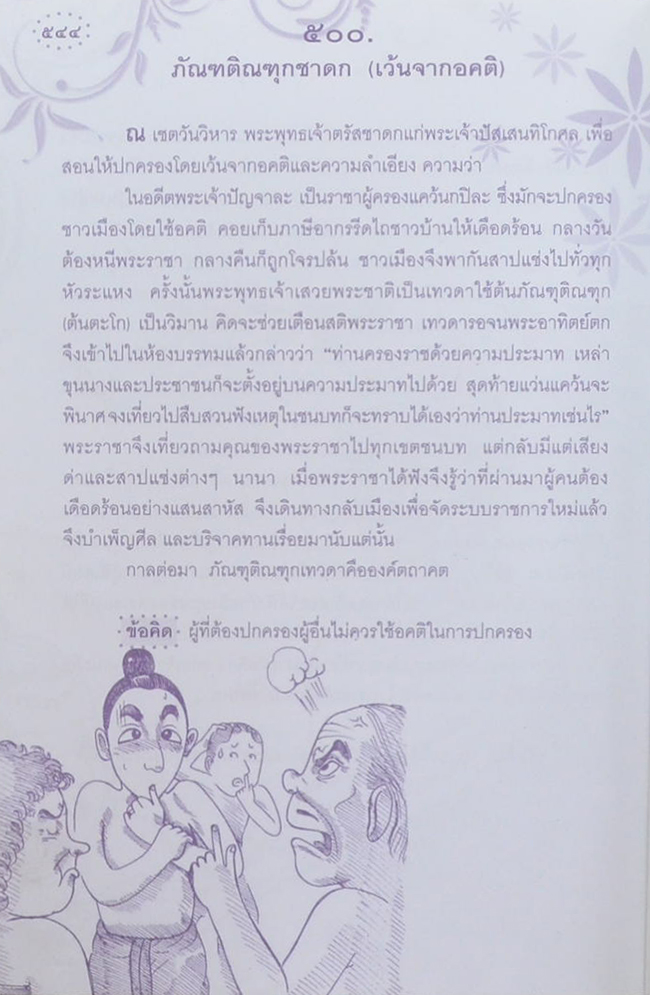 ๕๔๔
๕๐๐.
ภัณฑติณฑุกชาดก (เว้นจากอคติ)
ณ เชตวันวิหาร พระพุทธเจ้าตรัสชาดกแก่พระเจ้าปัสเสนทิโกศล เพื่อ
สอนให้ปกครองโดยเว้นจากอคติและความลำเอียง ความว่า
ในอดีตพระเจ้าปัญจาละ เป็นราชาผู้ครองแคว้นกปิละ ซึ่งมักจะปกครอง
ชาวเมืองโดยใช้อคติ คอยเก็บภาษีอากรรีดไถชาวบ้านให้เดือดร้อน กลางวัน
ต้องหนีพระราชา กลางคืนก็ถูกโจรปล้น ชาวเมืองจึงพากันสาปแช่งไปทั่วทุก
หัวระแหง ครั้งนั้นพระพุทธเจ้าเสวยพระชาติเป็นเทวดาใช้ต้นภัณฑุติณฑุก
(ต้นตะโก) เป็นวิมาน คิดจะช่วยเตือนสติพระราชา เทวดารอจนพระอาทิตย์ตก
จึงเข้าไปในห้องบรรทมแล้วกล่าวว่า “ท่านครองราชด้วยความประมาท เหล่า
ขุนนางและประชาชนก็จะตั้งอยู่บนความประมาทไปด้วย สุดท้ายแว่นแคว้นจะ
พินาศ จงเที่ยวไปสืบสวนฟังเหตุในชนบทก็จะทราบได้เองว่าท่านประมาทเช่นไร”
พระราชาจึงเที่ยวถามคุณของพระราชาไปทุกเขตชนบท แต่กลับมีแต่เสียง
ด่าและสาปแช่งต่างๆ นานา เมื่อพระราชาได้ฟังจึงรู้ว่าที่ผ่านมาผู้คนต้อง
เดือดร้อนอย่างแสนสาหัส จึงเดินทางกลับเมืองเพื่อจัดระบบราชการใหม่แล้ว
จึงบำเพ็ญศีล และบริจาคทานเรื่อยมานับแต่นั้น
กาลต่อมา ภัณฑุติณฑุกเทวดาคือองค์ตถาคต
ข้อคิด ผู้ที่ต้องปกครองผู้อื่นไม่ควรใช้อคติในการปกครอง